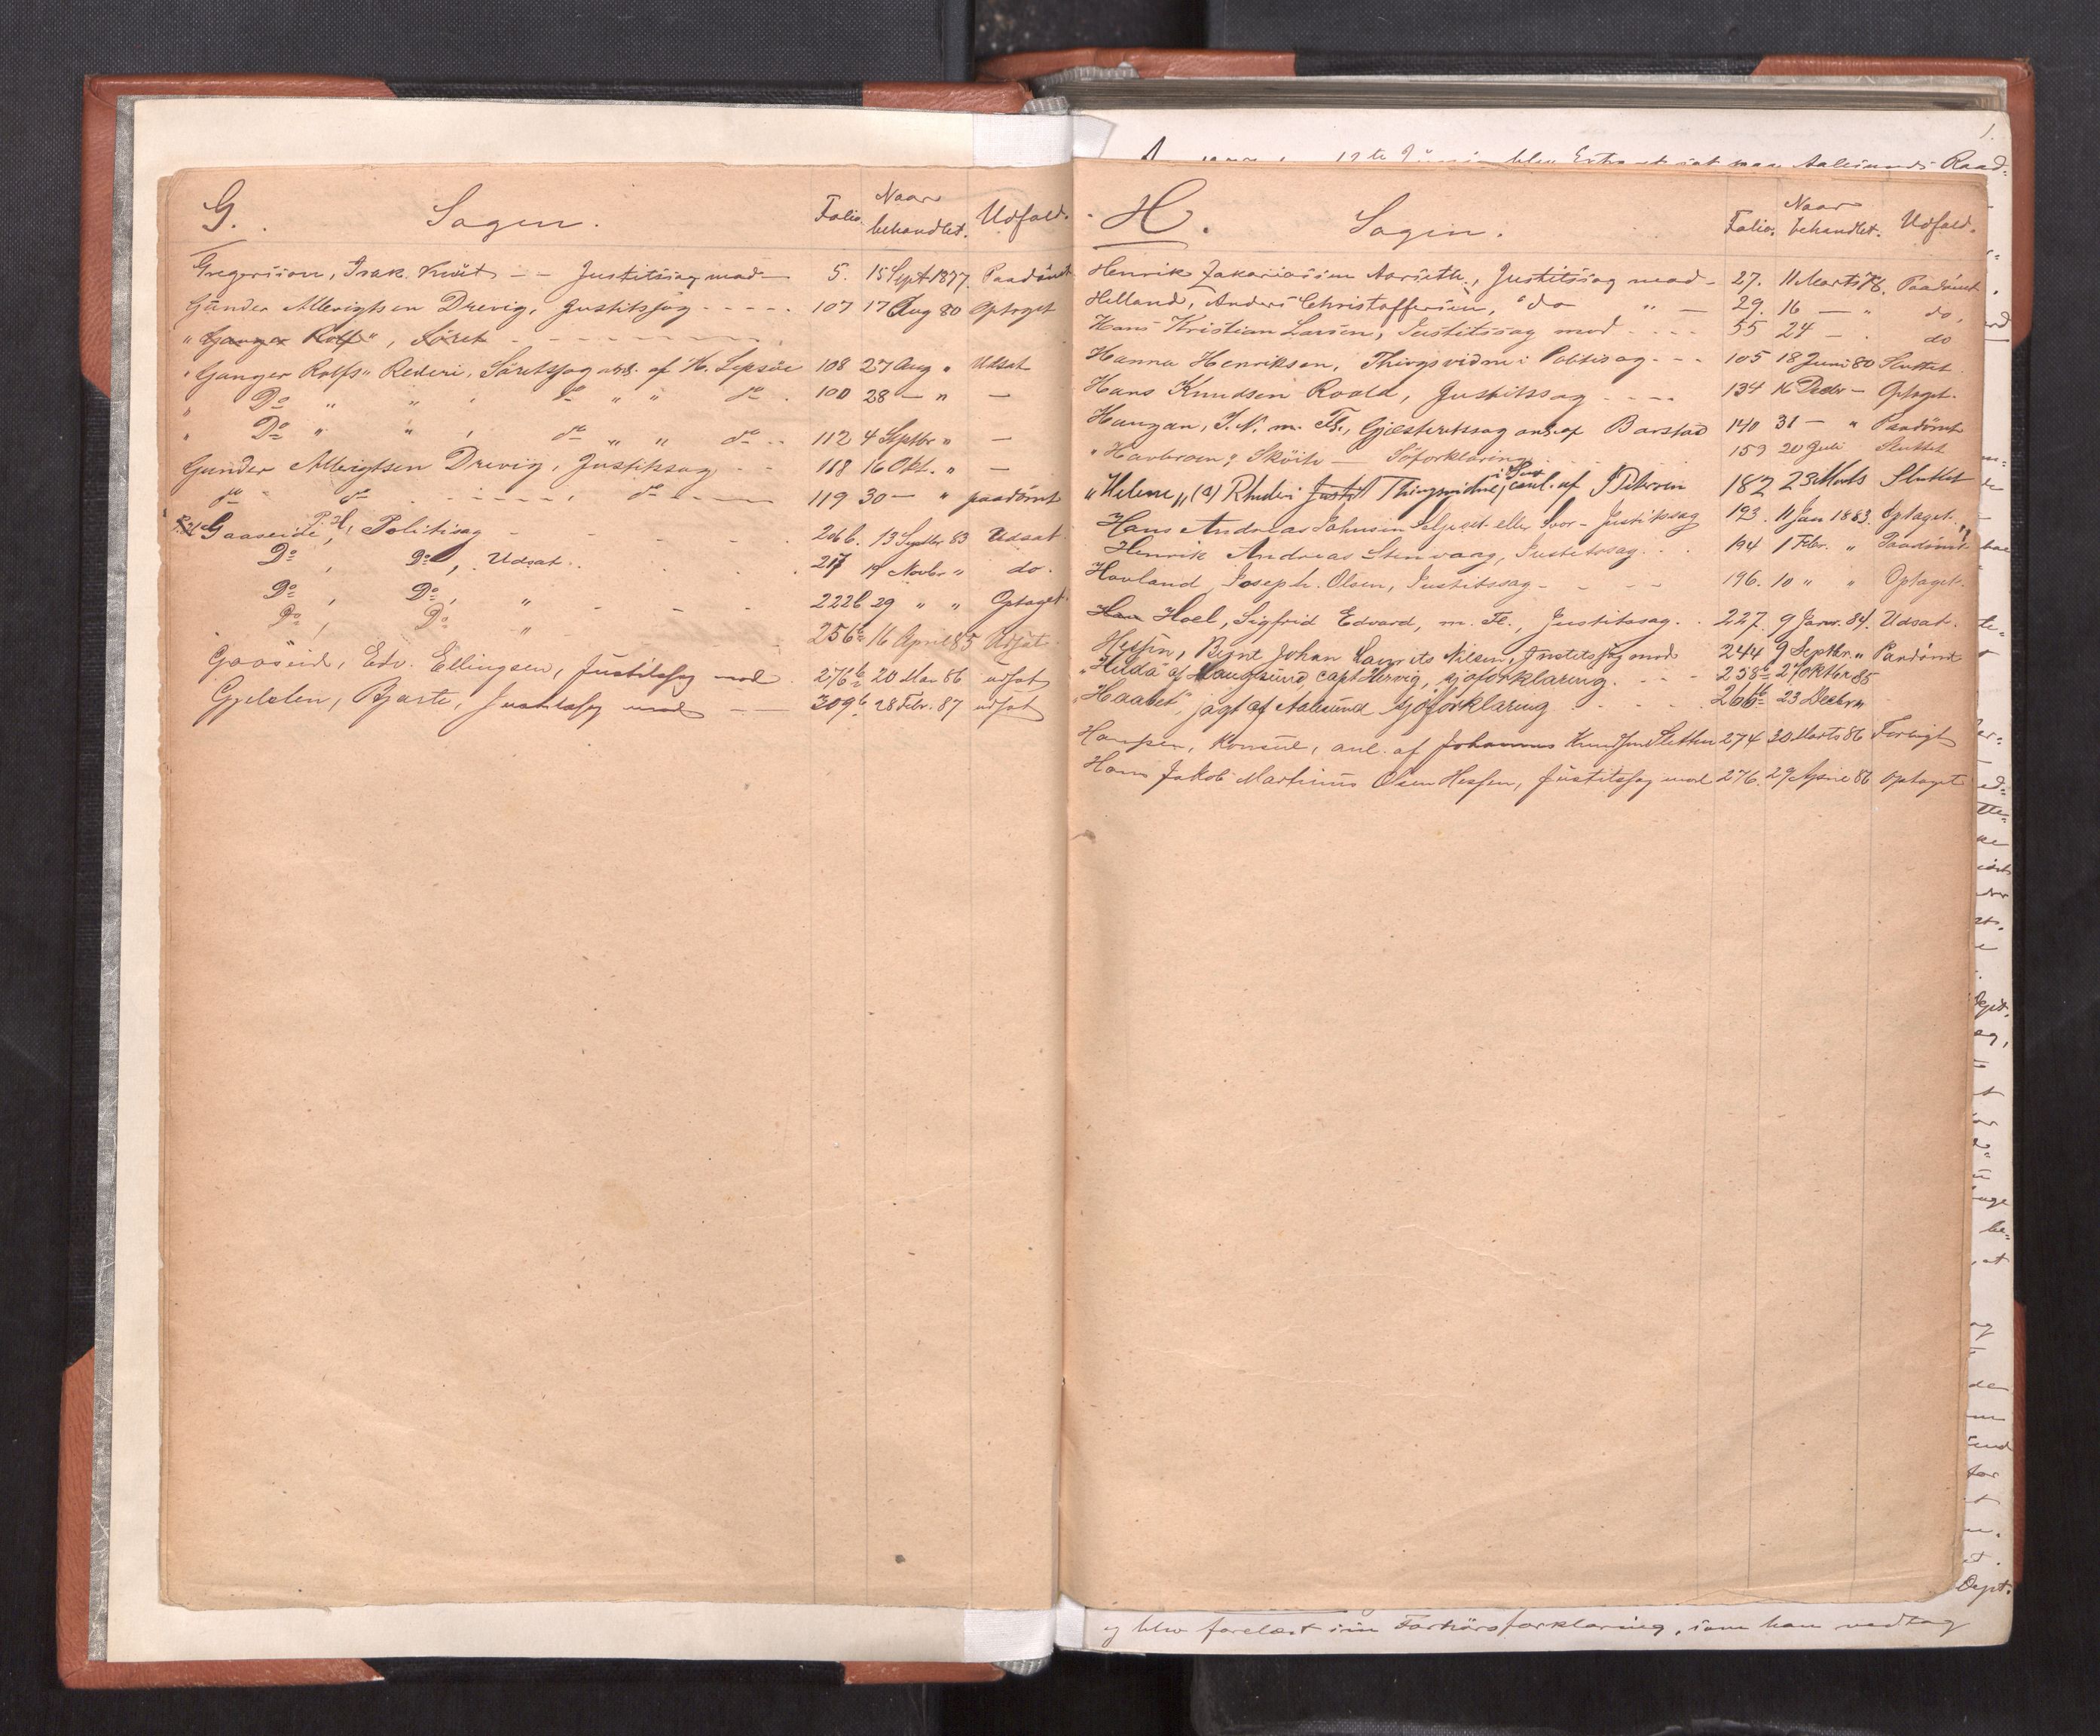 G. Sagen. Folio. Naar behandlet. Udfald.
Gregersson, Isak Knut - - Justitssag mod - 5. 15 Sept 1877. Paadömt
Gunder Albrigtsen Drevig, Justitssag - - - - - 107 17 Aug 80 Optaget
"Ganger Rolf", Söret - - - - - - - -
"Ganger Rolfs" Rederi, Söretssag anl. af H. Lepsöe 108 27 Aug " Udsat
" Do " " , do " " do . 100 28 — " —
" Do " " , do " " do . . 112 4 Septbr " —
Gunder Albrigtsen Drevig, Justitssag - - 118 16 Okt. " —
do do - - - - - , do - - - - 119 30 — " paadömt
Gaaseide, P. H., Politisag - - - - - 206 b. 13 Septbr 83 Udsat
Do , Do , Udsat . . . . . 217 19 Novbr " do.
Do , Do , " - - - 222b 29 " " Optaget
Do , Do " - - 256 b 16 April 85 Udsat
Gaaseid, Edv. Ellingsen, Justitssag mod . 276 b 20 Mai 86 udsat
Gjelsten, Bjarte, Justitssag mod — 309 b 28 Febr. 87 udsat
H. Sagen. Folio. Naar behandlet. Udfald.
Henrik Zakariassen Aarseth, Justitssag mod - 27. 11 Marts 78. Paadömt
Helland, Anders Christoffersen, " do " — 29. 16 — " do,
Hans Kristian Larsen, Justitssag mod - - - - 55 24 — . do
Hanna Henriksen, Thingsvidne i Politisag - - - 105 18 Juni 80 Sluttet
Hans Knudsen Roald, Justitssag - - - - 134 16 Decbr — Optaget.
Haugan, I. N. m. Fl., Gjesteretssag anl. af Barstad 140 31 — " Paadömt
"Havbroen", Sköite — Söforklaring . . . 159 20 Juli Sluttet
"Helene" (a) Rhederi Justit Thingsvidne i Sag anl. af Petersen 182 23 Marts Sluttet
Hans Andreas Johnsen Seljeset eller Svor - Justitssag 193. 11 Jan 1883. Optaget.
Henrik Andreas Stenvaag, Justitssag . . 194 1 Febr. " Paadömt
Hovland, Joseph Olsen, Justitssag - - - 196. 10 " " Optaget.
Han Hoel, Sigfrid Edvard, m. Fl., Justitssag . . 227. 9 Janr. 84. Udsat.
Hessen, Bernt Johan Laurits Nilsen, Justitssag mod 244 9 Septbr. " Paadömt
"Hilda" af Haugesund, capt Hervig, sjøforklaring. - - - 258 b 27 oktbr 85
"Haabet", jagt af Aalesund sjøforklaring . . . . . 266 b 23 Decbr "
Hansen, Konsul, anl. af Johannes Knudsen Slethen 274 30 Marts 86 Forligt
Hans Jakob Martinus Olsen Hessen, Justitssag mod 276. 29 April 86 Optaget
og blev forelæst sin Forhörsforklaring, som han vedtog